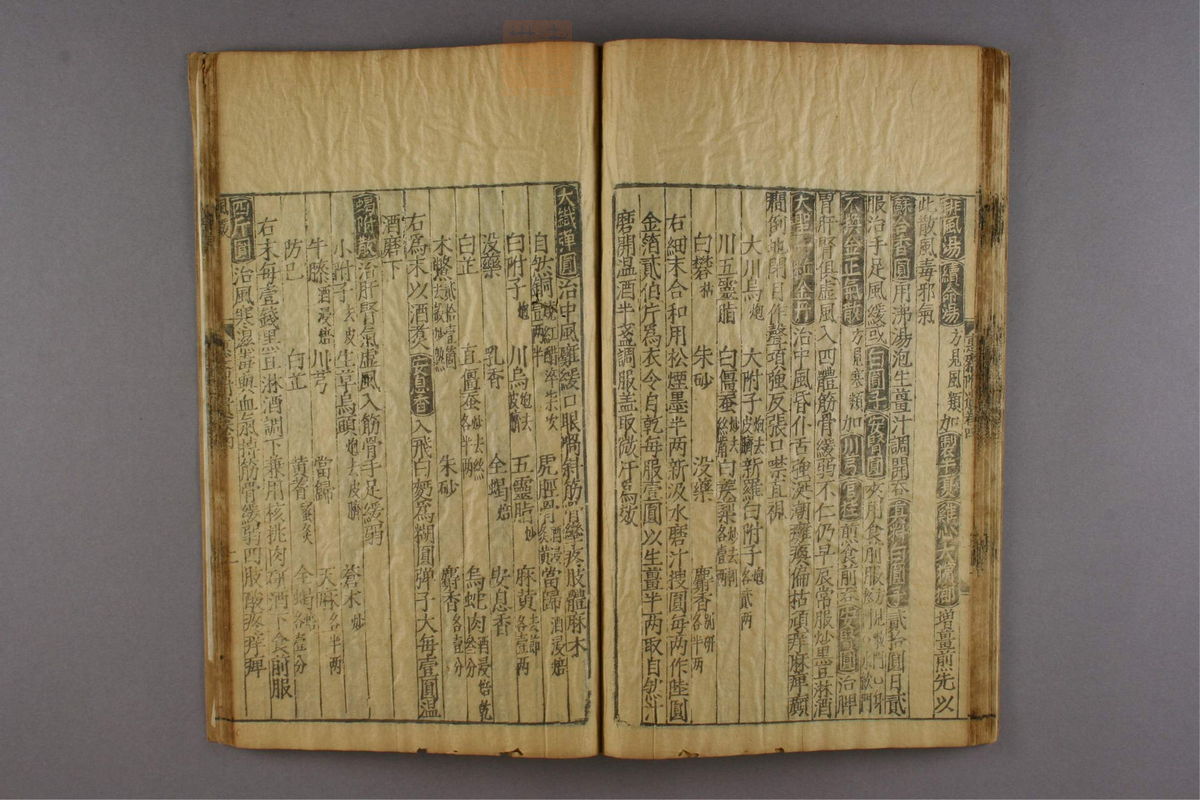 排風湯續命湯方見風類加製半夏
增薑煎先以
此散風毒邪氣
蘇合香圓用沸湯泡生薑汁調開吞青州白圓子貳拾圓日貳
服治手足風緩或白圓子安腎圓夾用食前服
不換金正氣散方見寒類加川芎官桂煎食前吞安腎圓治脾
胃肝腎俱虛風入四體筋骨緩弱不仁仍早晨常服炒黑豆淋酒
大聖一粒金丹治中風昏仆舌強涎潮癱瘓偏枯頑痒麻痺癲
癇倒地閉目作聲項強反張口噤直視
大川烏炮 大附子炮去皮臍 新羅白附子炮各貳兩
川五靈脂 白僵蠶炒去絲 白蒺藜炒去刺各壹兩
白礬枯 朱砂 沒藥 麝香別研各半兩
右細末合和用松煙墨半兩新汲水磨汁搜圓每兩作陸圓
金箔貳伯片為衣令自乾每服壹圓以生薑半兩取自然汁
磨開溫酒半盞調服蓋取微汗為效
大鐵彈圓治中風癱緩口眼喎斜筋骨攣疼肢體麻木
自然銅煅紅醋淬柒次壹兩半 虎脛骨酒浸炙黃 當歸酒浸焙
白附子炮 川烏炮去皮臍 五靈脂炒 麻黃去節各壹兩
沒藥 乳香 全蝎焙 安息香
白芷 直僵蚕炒去絲各半兩 烏蛇肉酒浸焙乾
木鱉去殼炒貳拾壹箇 朱砂 麝香各壹分
右為末以酒煮安息香入飛白麪為糊圓彈子大每壹圓溫
酒磨下
蝎附散治肝腎氣虛風入筋骨手足緩弱
小附子去皮 生草烏頭炮去皮臍 蒼朮炒
牛膝酒浸焙 川芎 當歸 天麻各半兩
防巳 白芷 黃耆蜜炙 全蝎焙各壹分
右末每壹錢黑豆淋酒調下兼用核桃肉 酒下食前服
四斤圓治風寒濕毒與血氣搏筋骨緩弱四肢酸疼痒痺